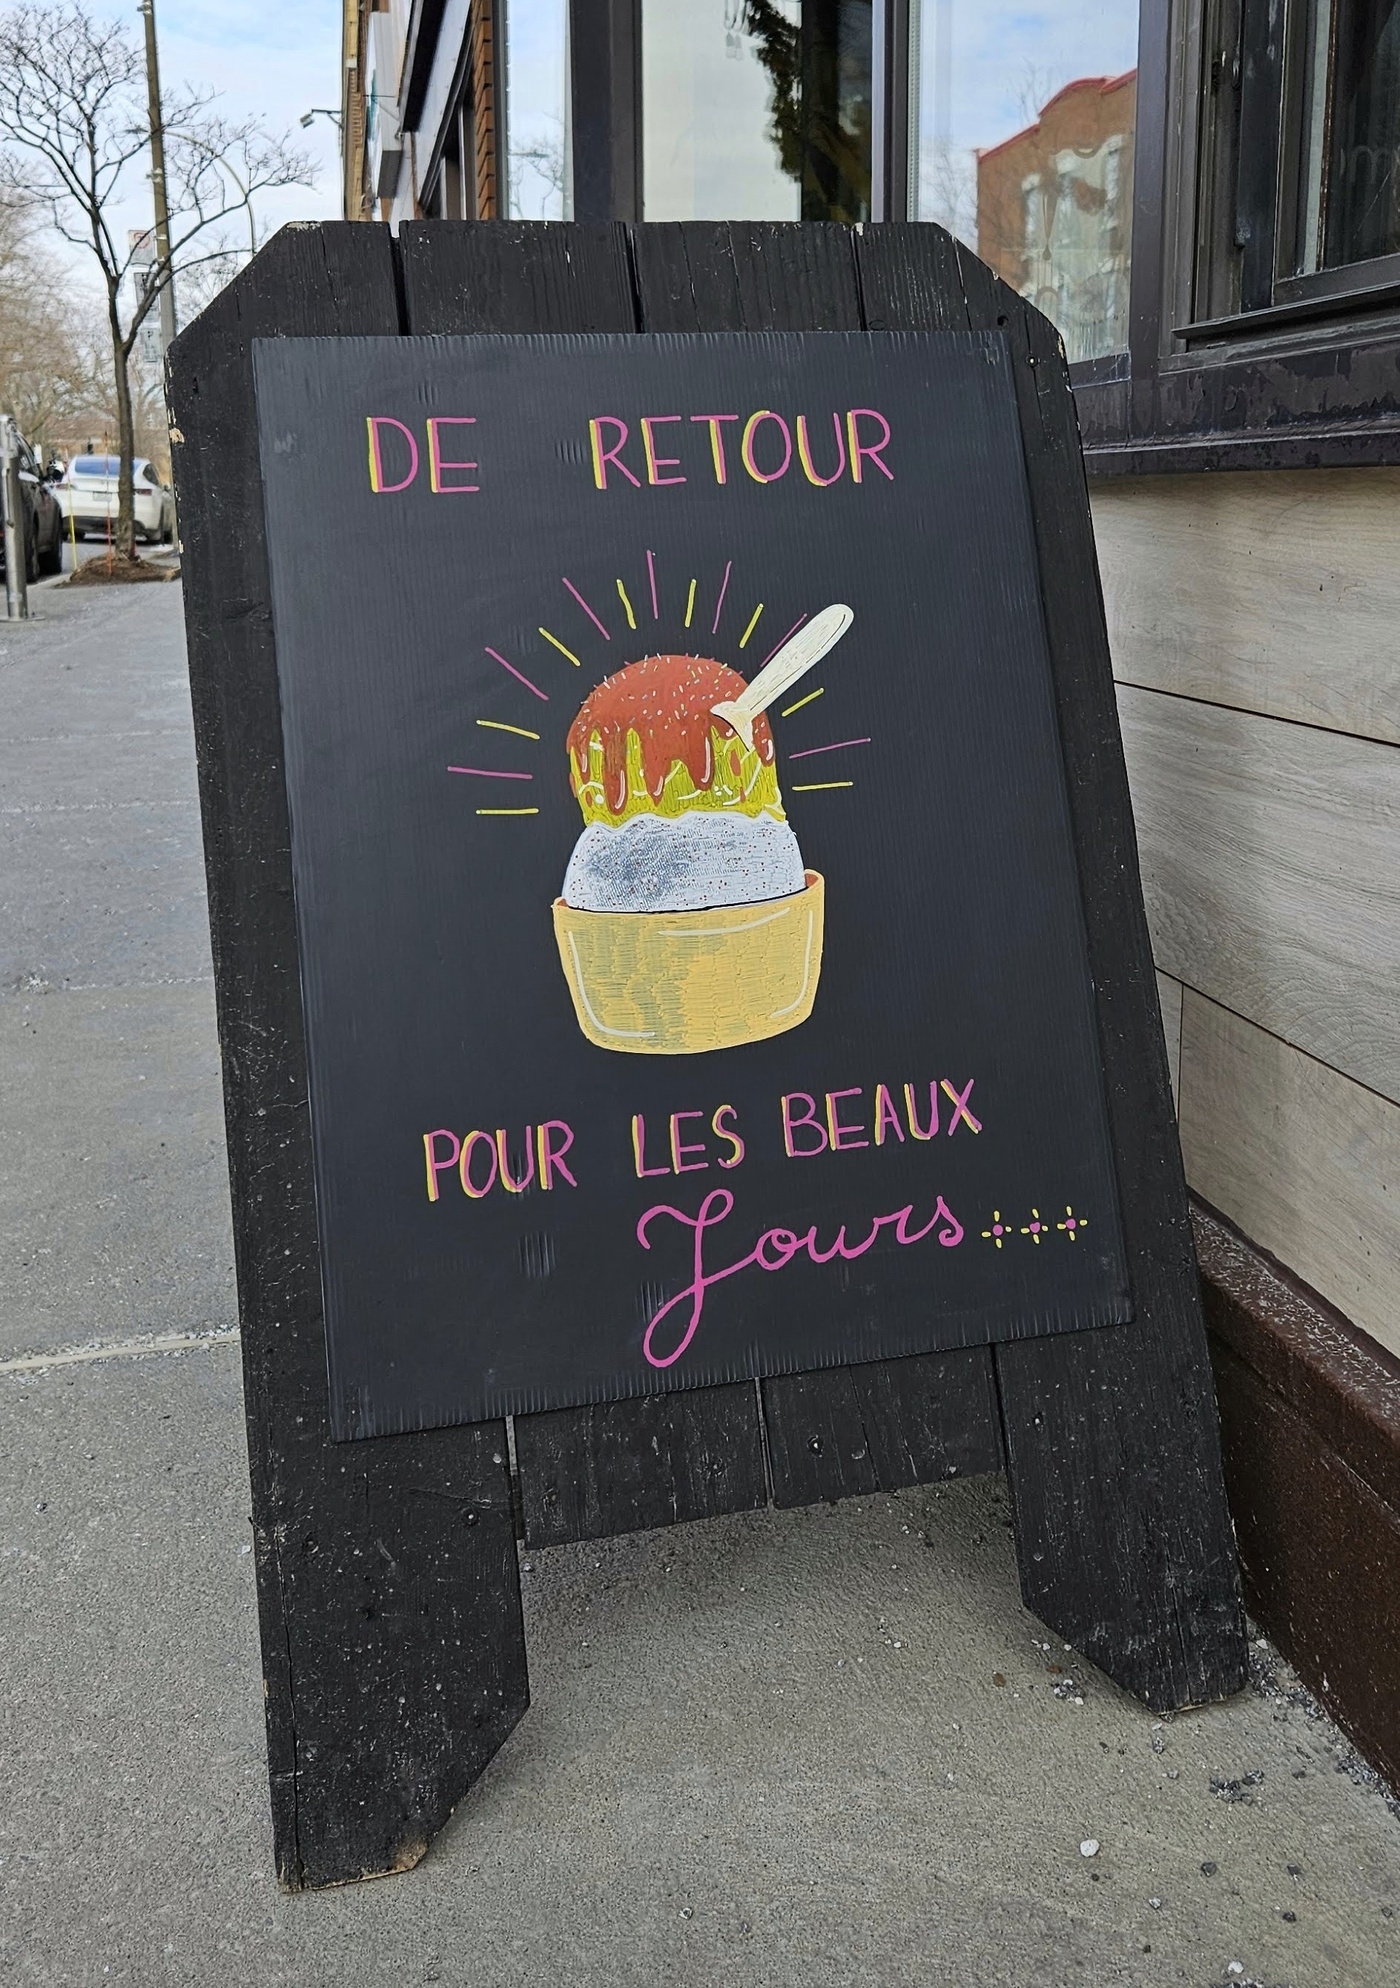 DE RETOUR
POUR LES BEAUX
Jours...